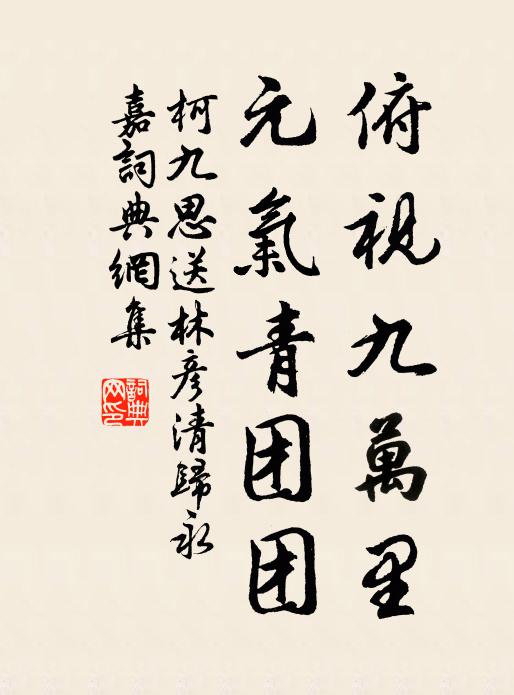 俯視九萬里
元氣青团团
柯九思送林彦清歸永
嘉詞典網集
詞典
网印